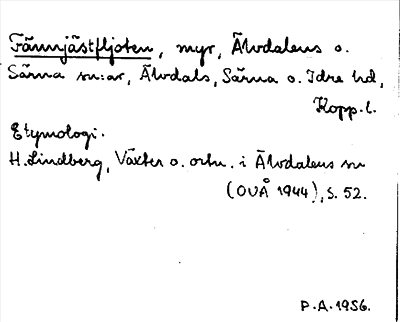 Fännjästfljoten, myr, Älvdalens o.
Särna sn:ar, Älvdals, Särna o. Idre hd,
Kopp. l.
Etymologi.
H. Lindberg, Växter o. ortn. i Älvdalens sn
(OUÅ 1944), s. 52.
P.A. 1956.